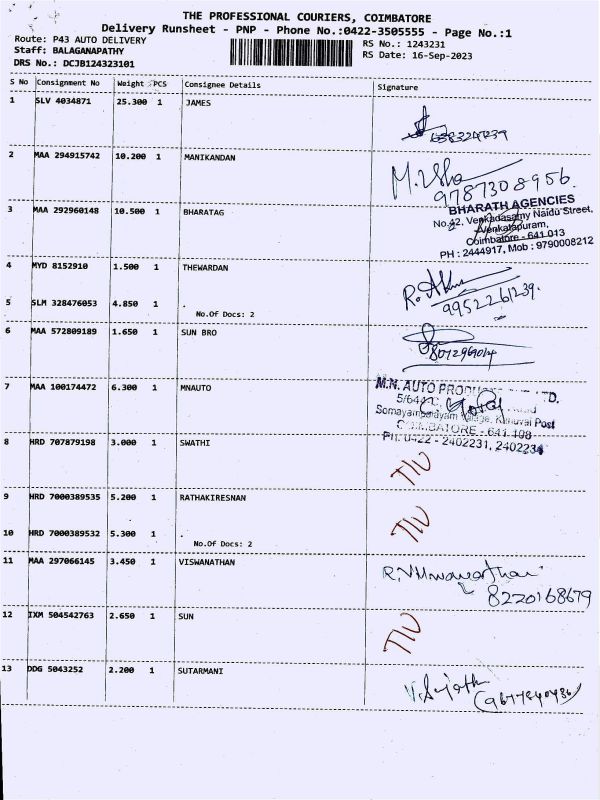 THE PROFESSIONAL COURIERS, COIMBATORE
Delivery Runsheet - PNP - Phone No.:0422-3505555 - Page No.:1
Route: P43 AUTO DELIVERY
RS No.: 1243231
Staff: BALAGANAPATHY
RS Date: 16-Sep-2023
DRS No.: DCJB124323101
S No Consignment No Weight PCS Consignee Details Signature
1 SLV 4034871 25.300 1 JAMES
2 MAA 294915742 10.200 1 MANIKANDAN
M. Usha
9787308956.
3 MAA 292960148 10.500 1 BHARATAG
BHARATH AGENCIES
No.42, Venkadasamy Naidu Street,
Venkatapuram,
Coimbatore - 641 013
PH : 2444917, Mob : 9790008212
4 MYD 8152910 1.500 1 THEWARDAN
9952261239.
5 SLM 328476053 4.850 1 .
No.Of Docs: 2
6 MAA 572809189 1.650 1 SUN BRO
7 MAA 100174472 6.300 1 MNAUTO
M.N. AUTO LTD.
5/644
Somayampalayam Village, Kanuvai Post
COIMBATORE - 641 108
PH: 0422 - 2402231, 2402234
8 HRD 707879198 3.000 1 SWATHI
9 HRD 7000389535 5.200 1 RATHAKIRESNAN
10 HRD 7000389532 5.300 1 .
No.Of Docs: 2
11 MAA 297066145 3.450 1 VISWANATHAN
8220168679
12 IXM 504542763 2.650 1 SUN
13 DDG 5043252 2.200 1 SUTARMANI